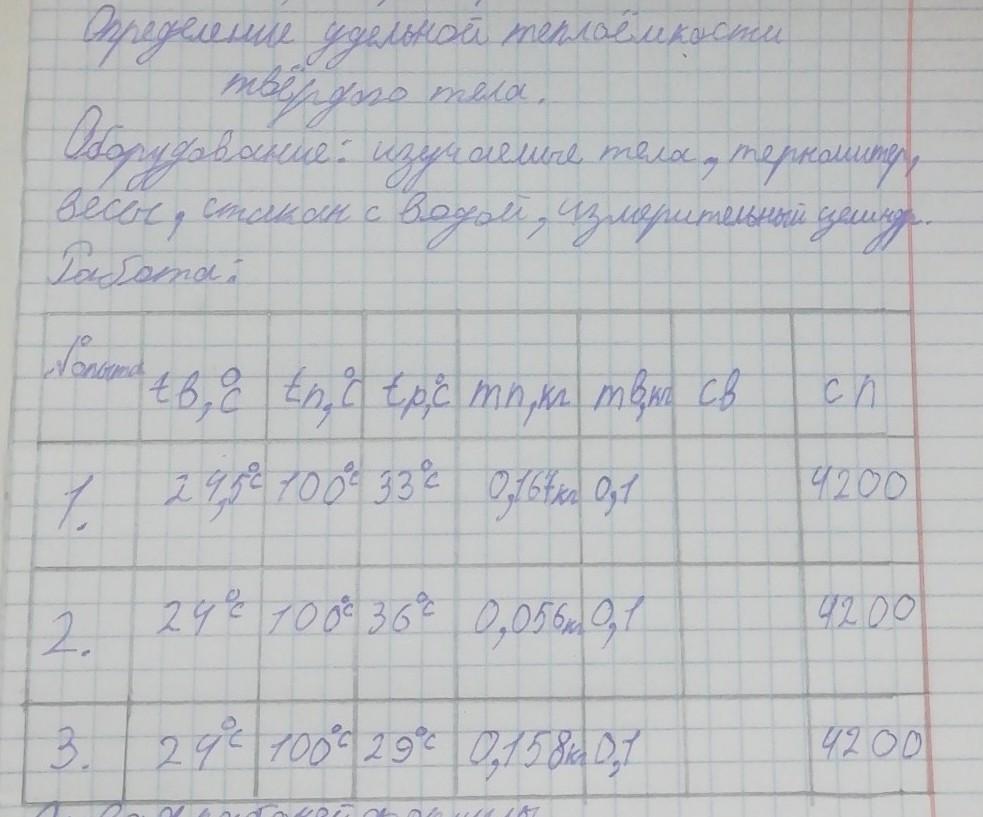 Определение удельной теплоёмкости
твёрдого тела.
Оборудование: изучаемые тела, термометр,
весы, стакан с водой, измерительный цилиндр.
Работа:
№ опыта tв,°C tп,°C tр,°C mп,кг mв,кг cв cп
1. 24,5°C 100°C 33°C 0,167кг 0,1 4200
2. 24°C 100°C 36°C 0,056кг 0,1 4200
3. 24°C 100°C 29°C 0,158кг 0,1 4200